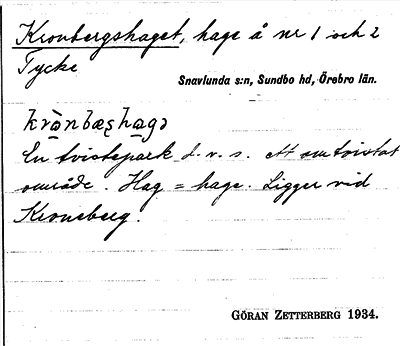 Kronbergshaget, hage å nr 1 och 2
Tycke
Snavlunda s:n, Sundbo hd, Örebro län.
En tvistepark d.v.s. ett omtvistat
område. Hag = hage. Ligger vid
Kroneberg.
GÖRAN ZETTERBERG 1934.